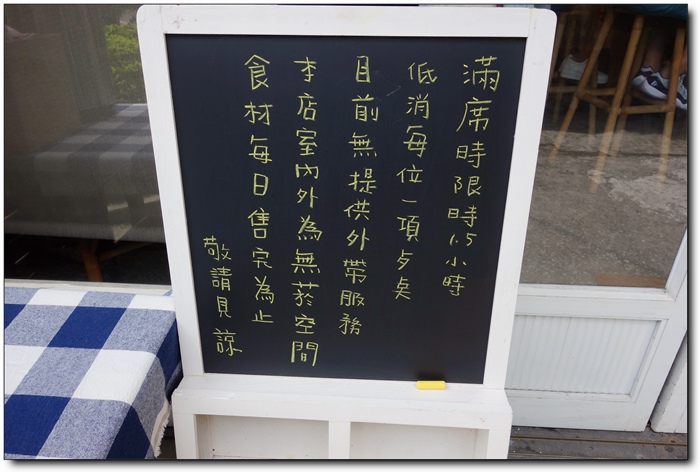 滿席時限時1.5小時
低消每位一項歺奌
目前無提供外帶服務
本店室內外為無菸空間
食材每日售完為止
敬請見諒